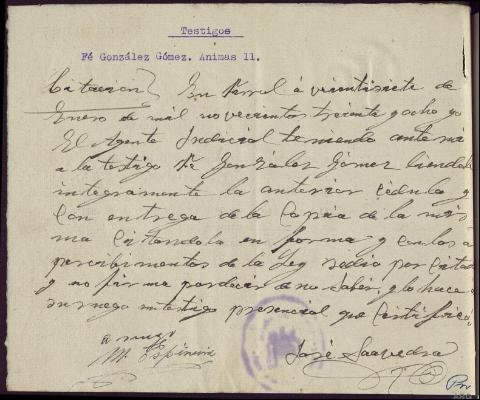 Testigos
Fé González Gómez. Animas 11.
Citacion} En Ferrol á veintisiete de
Enero de mil novecientos treinta y ocho yo
El Agente Judicial teniendo ante mi
a la testigo Fé González Gómez leiendola
integramente la anterior cedula y
con entrega de la copia de la mis
ma Citandola en forma y con los a
percibimentos de la Ley se dio por Citada
y no firma por decir de no saber, y lo hace a
su ruego un testigo presencial que Certifico,
a ruego
M. Espiñeira
José Saavedra